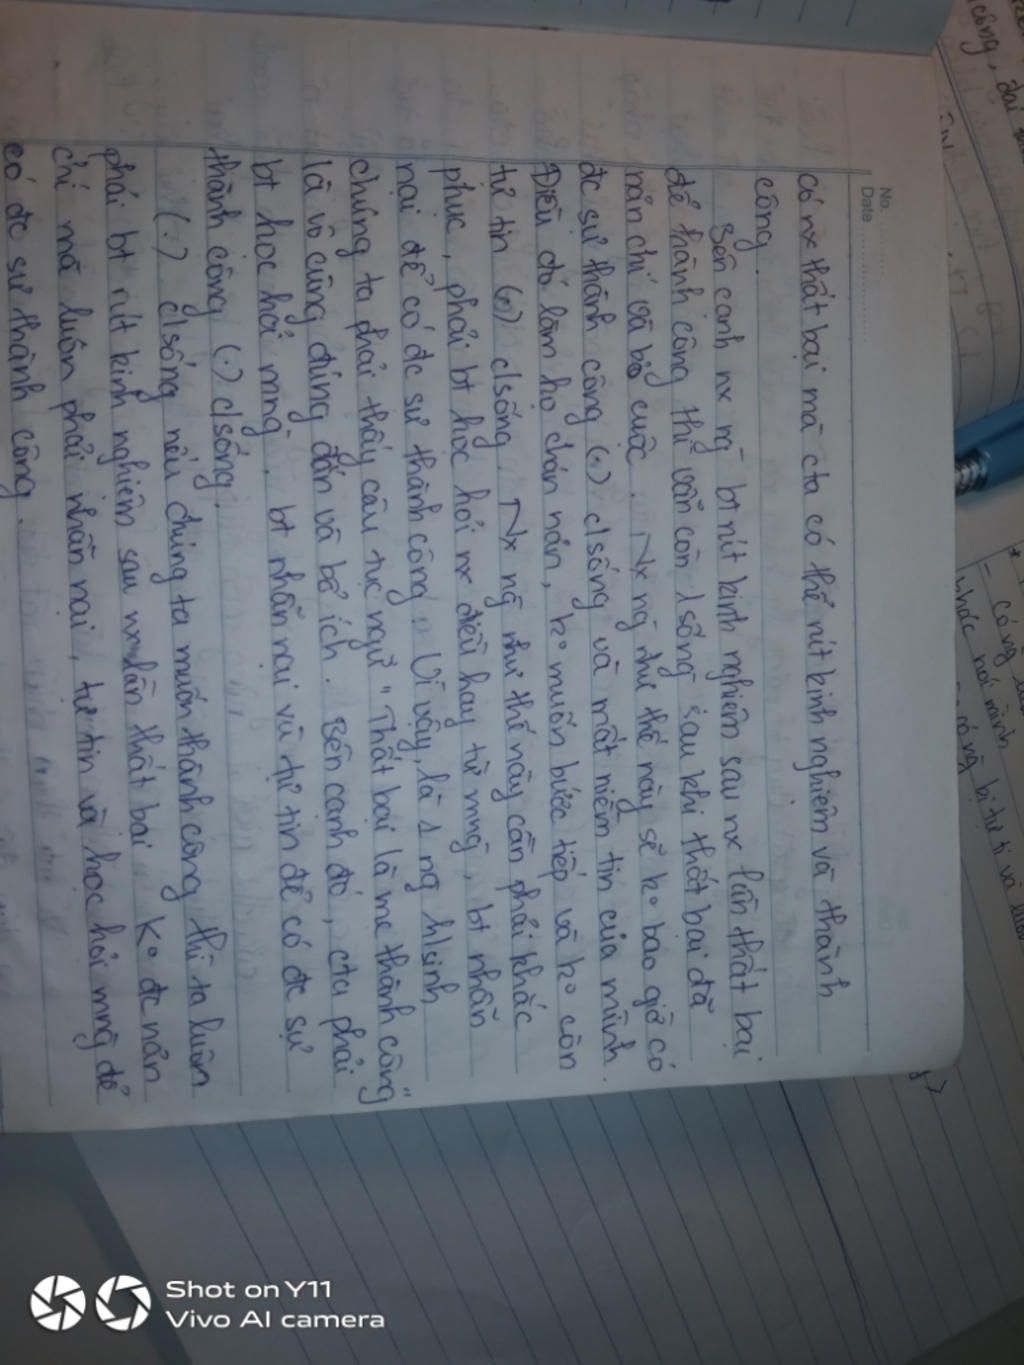 No.
Date
có nx thất bại mà cta có thể rút kinh nghiệm và thành
công.
Bên cạnh nx ng~ bt rút kinh nghiệm sau nx lần thất bại
để thành công thì vẫn còn 1 số ng~ sau khi thất bại đã
nản chí và bỏ cuộc. Nx ng~ như thế này sẽ ko bao giờ có
đc sự thành công (.) c/sống và mất niềm tin của mình.
Điều đó làm họ chán nản, ko muốn bước tiếp và ko còn
tự tin (.) c/sống. Nx ng~ như thế này cần phải khắc
phục, phải bt học hỏi nx điều hay từ mng~, bt nhẫn
nại để có đc sự thành công. Vì vậy, là 1 ng h/sinh
chúng ta phải thấy câu tục ngữ "Thất bại là mẹ thành công"
là vô cùng đúng đắn và bổ ích. Bên cạnh đó, cta phải
bt học hỏi mng~, bt nhẫn nại và tự tin để có đc sự
thành công (.) c/sống.
(.) c/sống nếu chúng ta muốn thành công thì ta luôn
phải bt rút kinh nghiệm sau mỗi lần thất bại. Ko đc nản
chí mà luôn phải nhẫn nại, tự tin và học hỏi mng~ để
có đc sự thành công.
công, đại
- Có ng~
khác nói mình
có ng~ bị tự ti và
Shot on Y11
Vivo AI camera